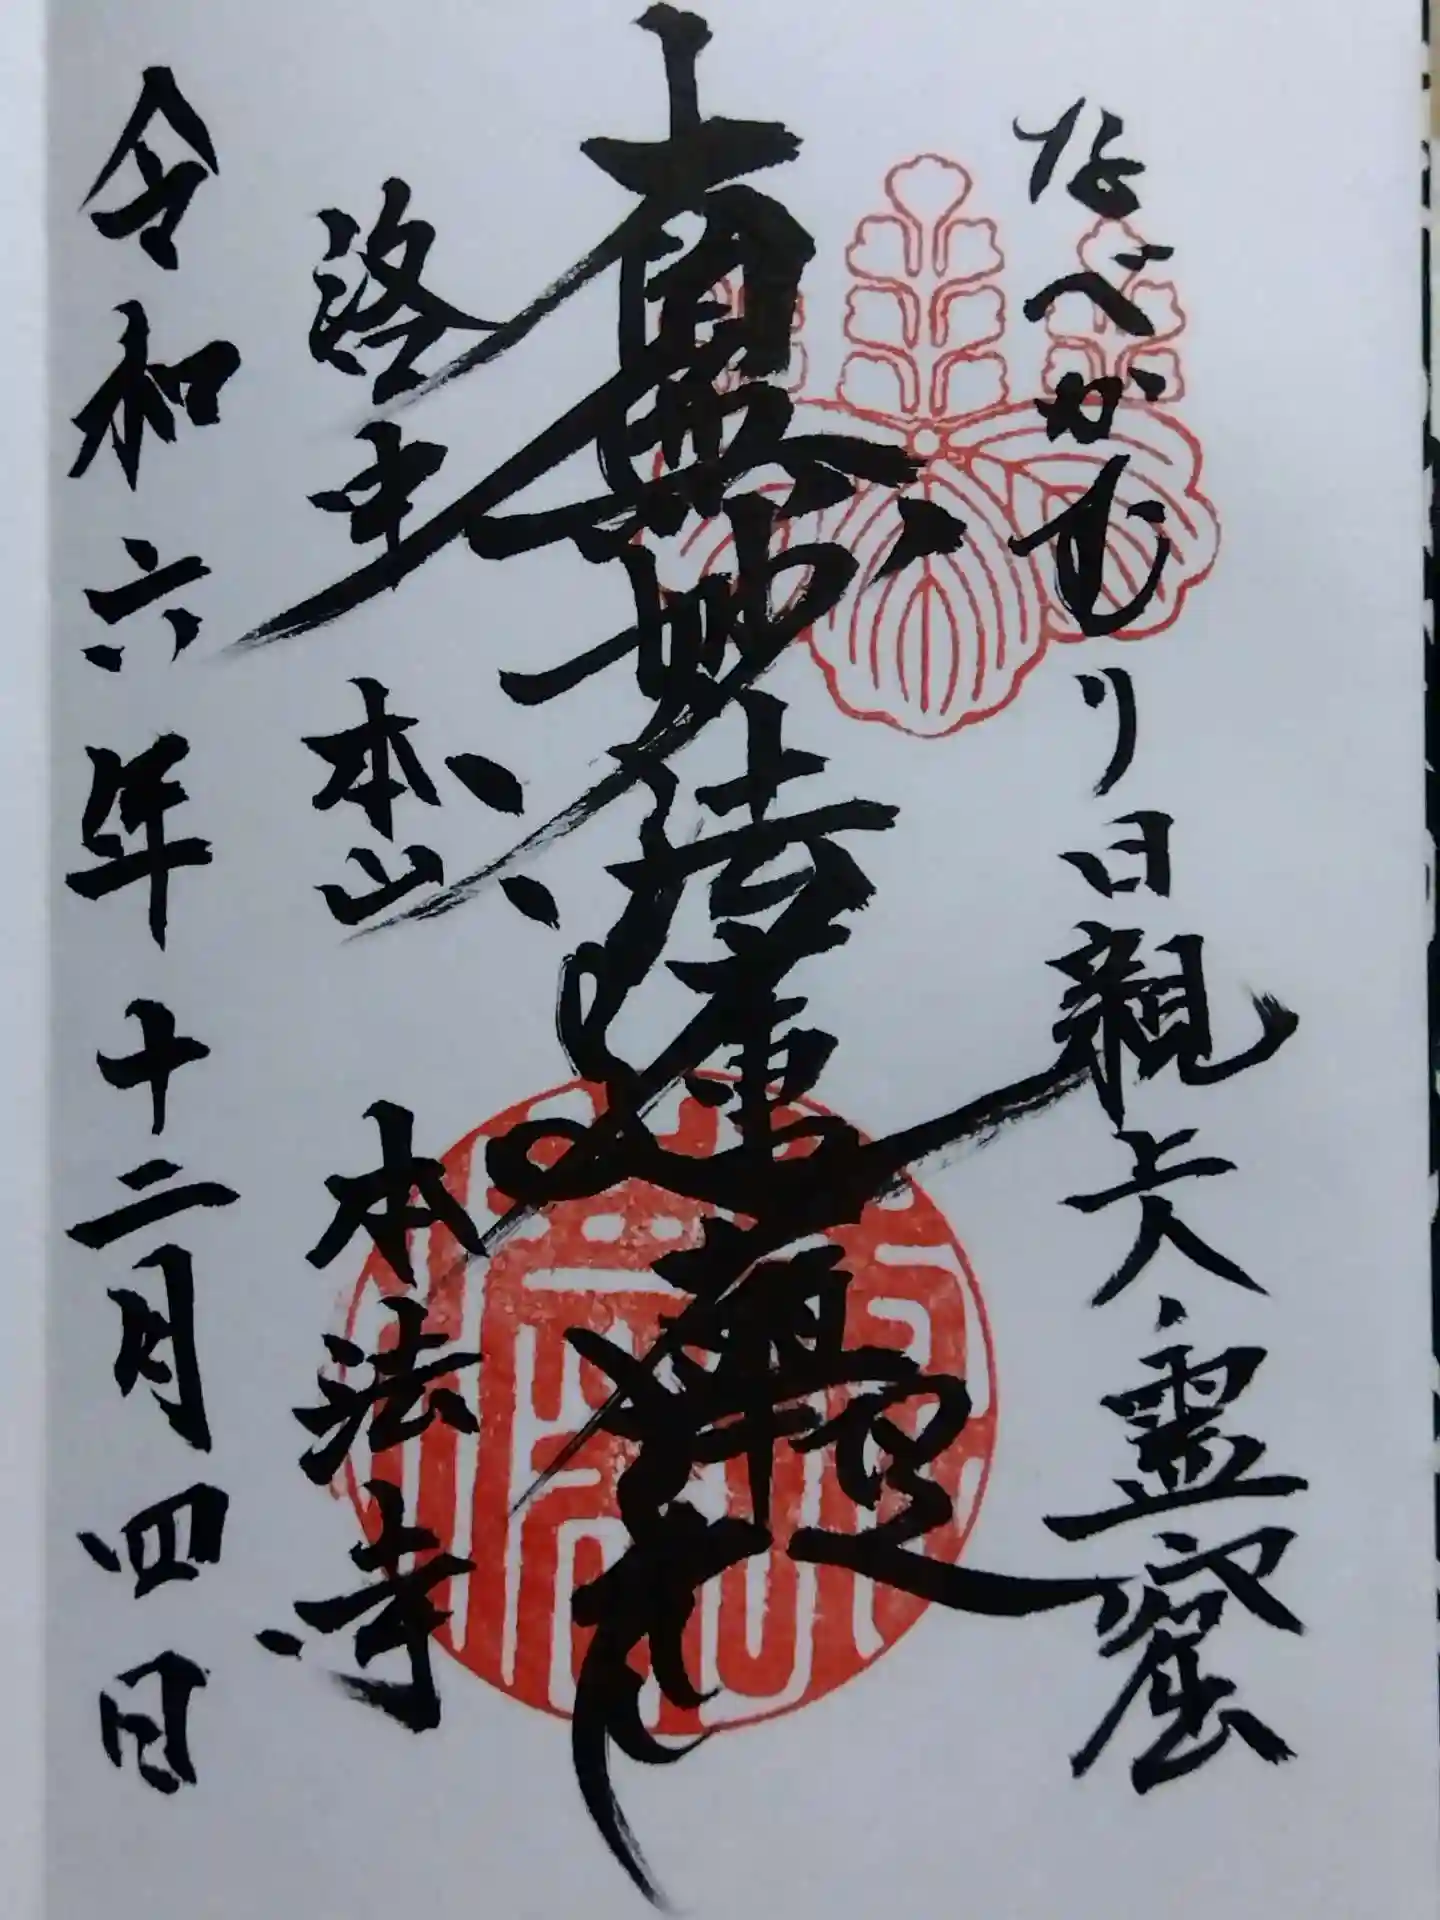 なべかむり日親上人霊窟
南無妙法蓮華経
洛中 本山 本法寺
令和六年十二月四日